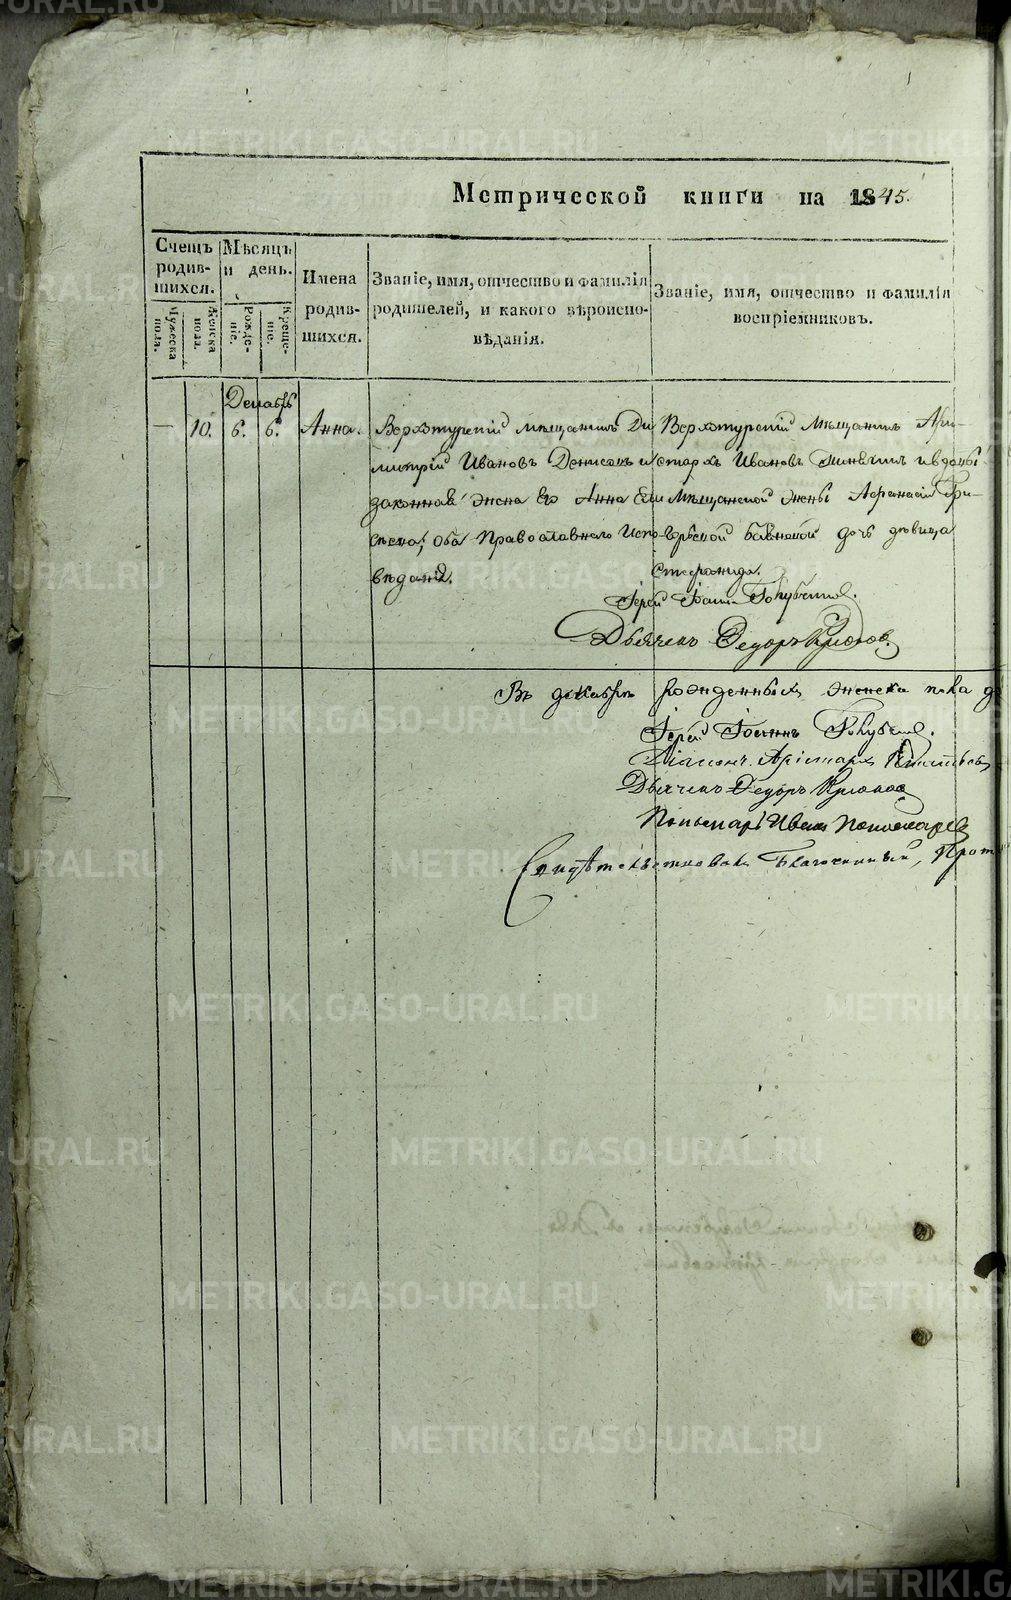 Метрической книги на 1845.
Счетъ родив-
шихся.
Мѣсяцъ
и день.
Имена
родив-
шихся.
Званіе, имя, отчество и фамилія
родителей, и какого вѣроиспо-
вѣданія.
Званіе, имя, отчество и фамилія
воспріемниковъ.
Мужеска
пола.
Женска
пола.
Рожде-
ніе.
Креще-
ніе.
Декабрь
— 10. 6. 6. Анна.
Верхотурскій мѣщанинъ Ди
митрій Ивановъ Денисовъ и
законная жена его Анна
оба Православнаго испо-
вѣданія.
Верхотурскій мѣщанинъ Ари-
стархъ Ивановъ и вдовы
Мѣщанской жены Гри-
дочь дѣвица
Стефанида.
Іерей Іоаннъ Голубевъ.
Дьячекъ Федоръ Крюковъ
Въ декабрѣ рожденныхъ женска пола
Іерей Іоаннъ Голубевъ.
Діаконъ Аристархъ
Дьячекъ Федоръ Крюковъ
Пономарь Иванъ Пономаревъ
Свидѣтельствовалъ Благочинный, Прот
METRIKI.GASO-URAL.RU